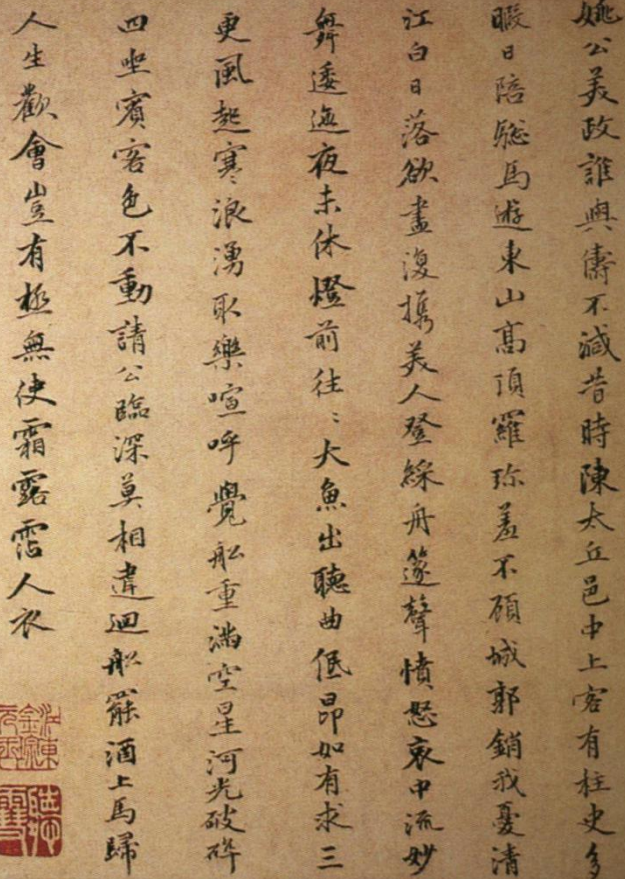 姚公美政誰與儔不減昔時陳太丘邑中上客有柱史多
暇日陪驄馬遊東山高頂羅珍羞不顧城郭銷我憂清
江白日落欲盡復攜美人登綵舟篴聲憤怒哀中流妙
舞逶迤夜未休燈前往〻大魚出聽曲低昂如有求三
更風起寒浪湧取樂喧呼覺舩重滿空星河光破碎
四坐賓客色不動請公臨深莫相違迴舩罷酒上馬歸
人生歡會豈有極無使霜露霑人衣